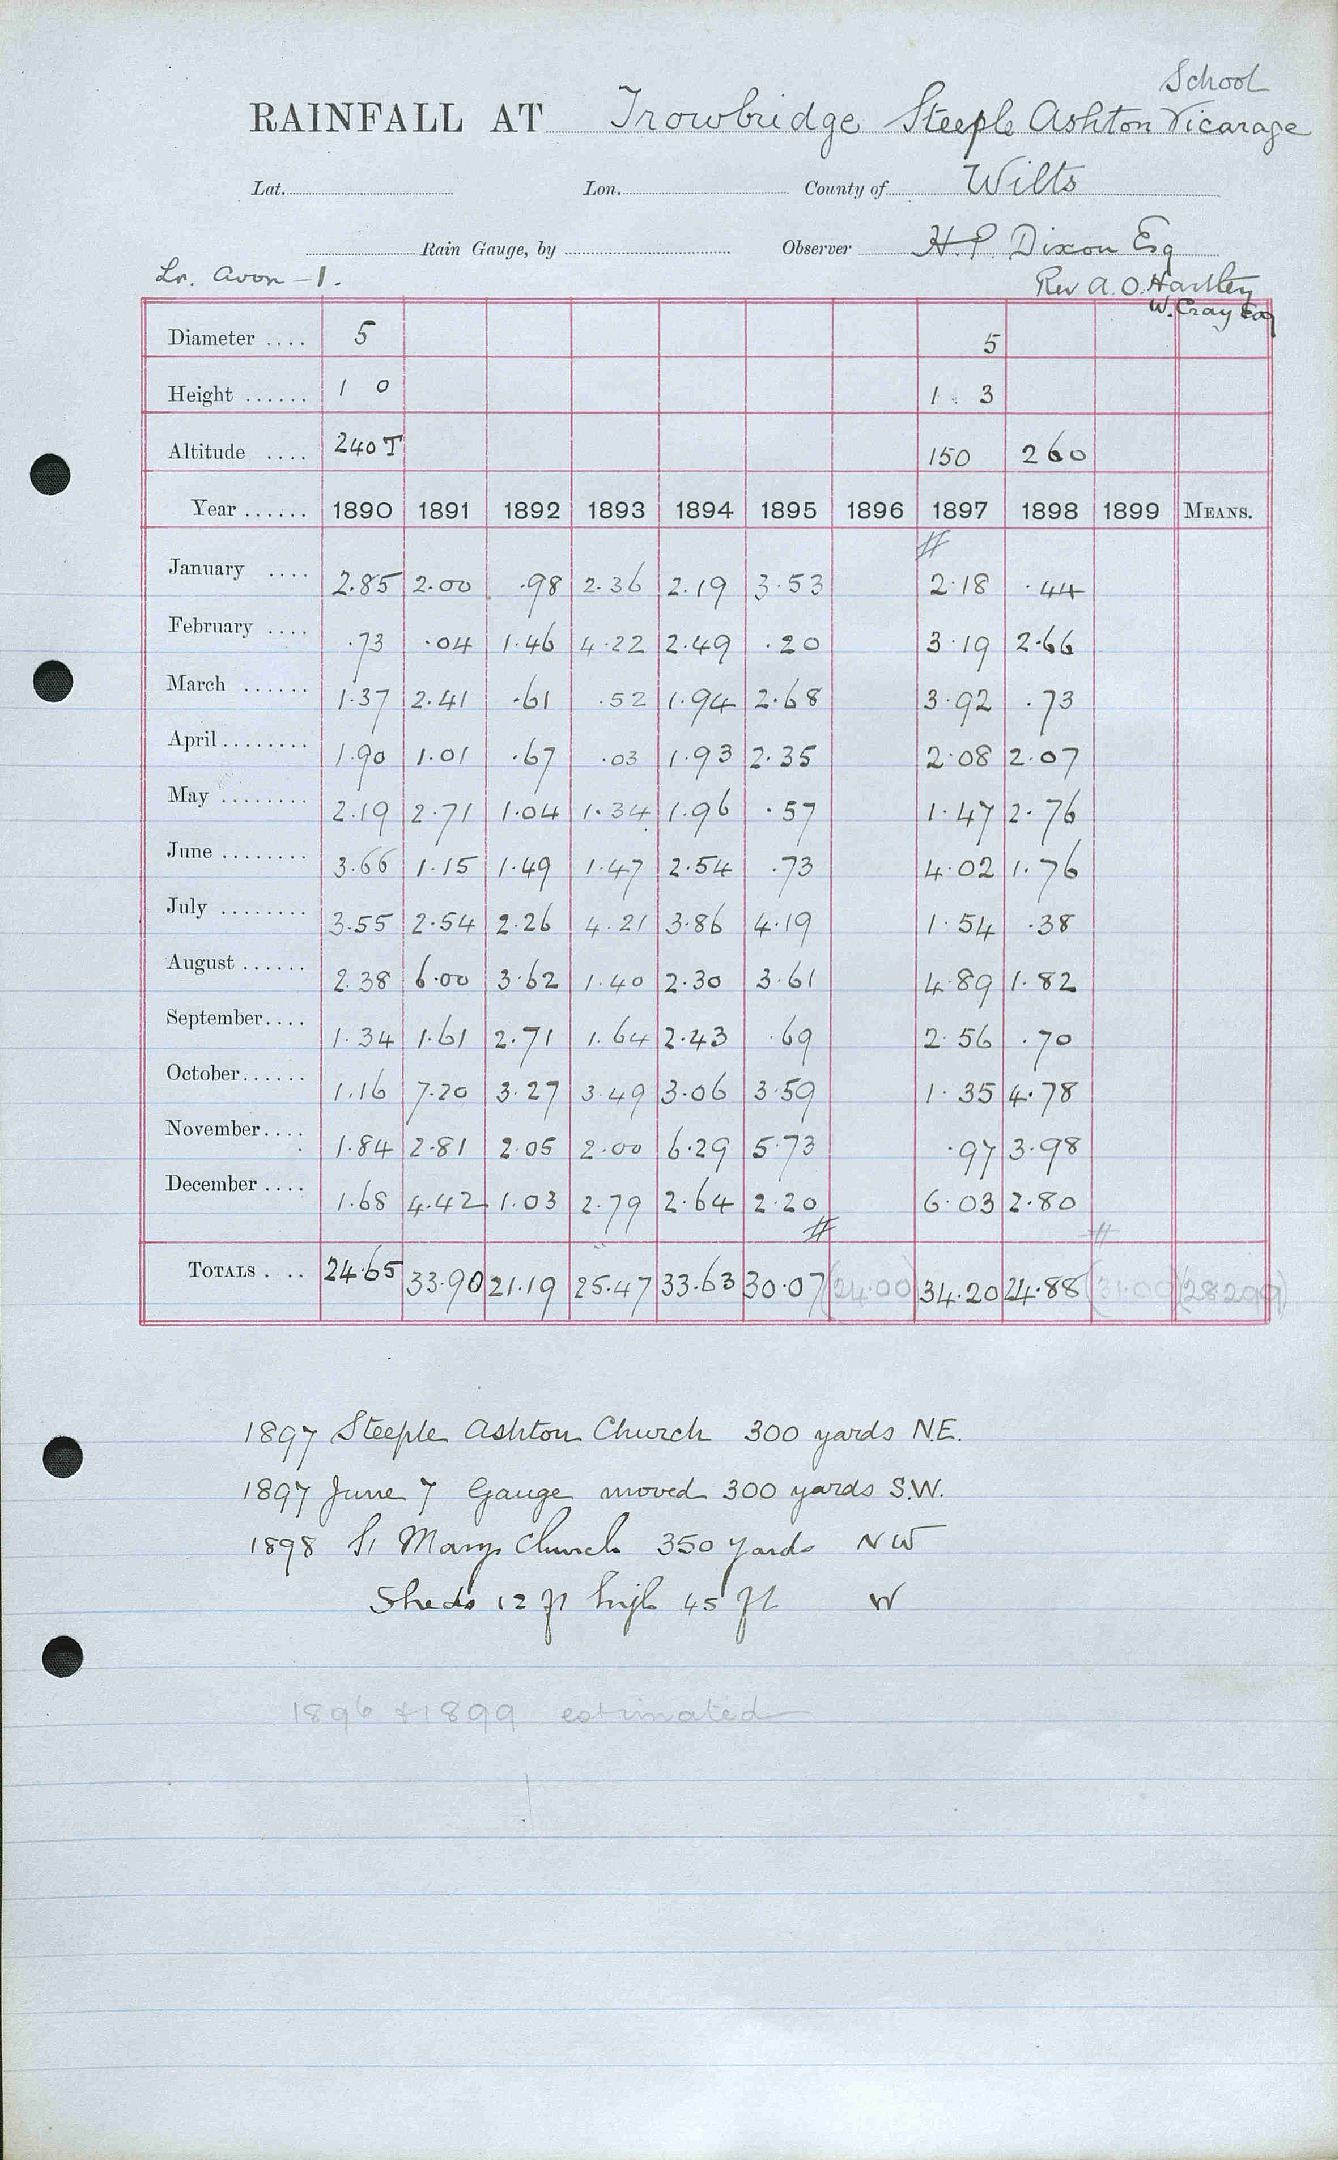 School
RAINFALL AT Trowbridge Steeple Ashton Vicarage
Lat. Lon. County of Wilts
Rain Gauge, by Observer H. P. Dixon Esq
Lr. Avon - 1. Rev A. O. Hartley
W. Cray Esq
Diameter .... 5 5
Height ...... 1 0 1 . 3
Altitude .... 240 T 150 260
Year ...... 1890 1891 1892 1893 1894 1895 1896 1897 1898 1899 MEANS.
January .... 2.85 2.00 .98 2.36 2.19 3.53 2.18 .44
February .... .73 .04 1.46 4.22 2.49 .20 3.19 2.66
March ...... 1.37 2.41 .61 .52 1.94 2.68 3.92 .73
April ........ 1.90 1.01 .67 .03 1.93 2.35 2.08 2.07
May ........ 2.19 2.71 1.04 1.34 1.96 .57 1.47 2.76
June ........ 3.66 1.15 1.49 1.47 2.54 .73 4.02 1.76
July ........ 3.55 2.54 2.26 4.21 3.86 4.19 1.54 .38
August ...... 2.38 6.00 3.62 1.40 2.30 3.61 4.89 1.82
September .... 1.34 1.61 2.71 1.64 2.43 .69 2.56 .70
October ...... 1.16 7.20 3.27 3.49 3.06 3.59 1.35 4.78
November .... 1.84 2.81 2.05 2.00 6.29 5.73 .97 3.98
December .... 1.68 4.42 1.03 2.79 2.64 2.20 6.03 2.80
TOTALS .... 24.65 33.90 21.19 25.47 33.63 30.07 (24.00) 34.20 24.88 (31.00) (28299)
1897 Steeple Ashton Church 300 yards N.E.
1897 June 7 Gauge moved 300 yards S.W.
1898 St Marys Church 350 yards NW
Sheds 12 ft high 45 ft W
1896 + 1899 estimated